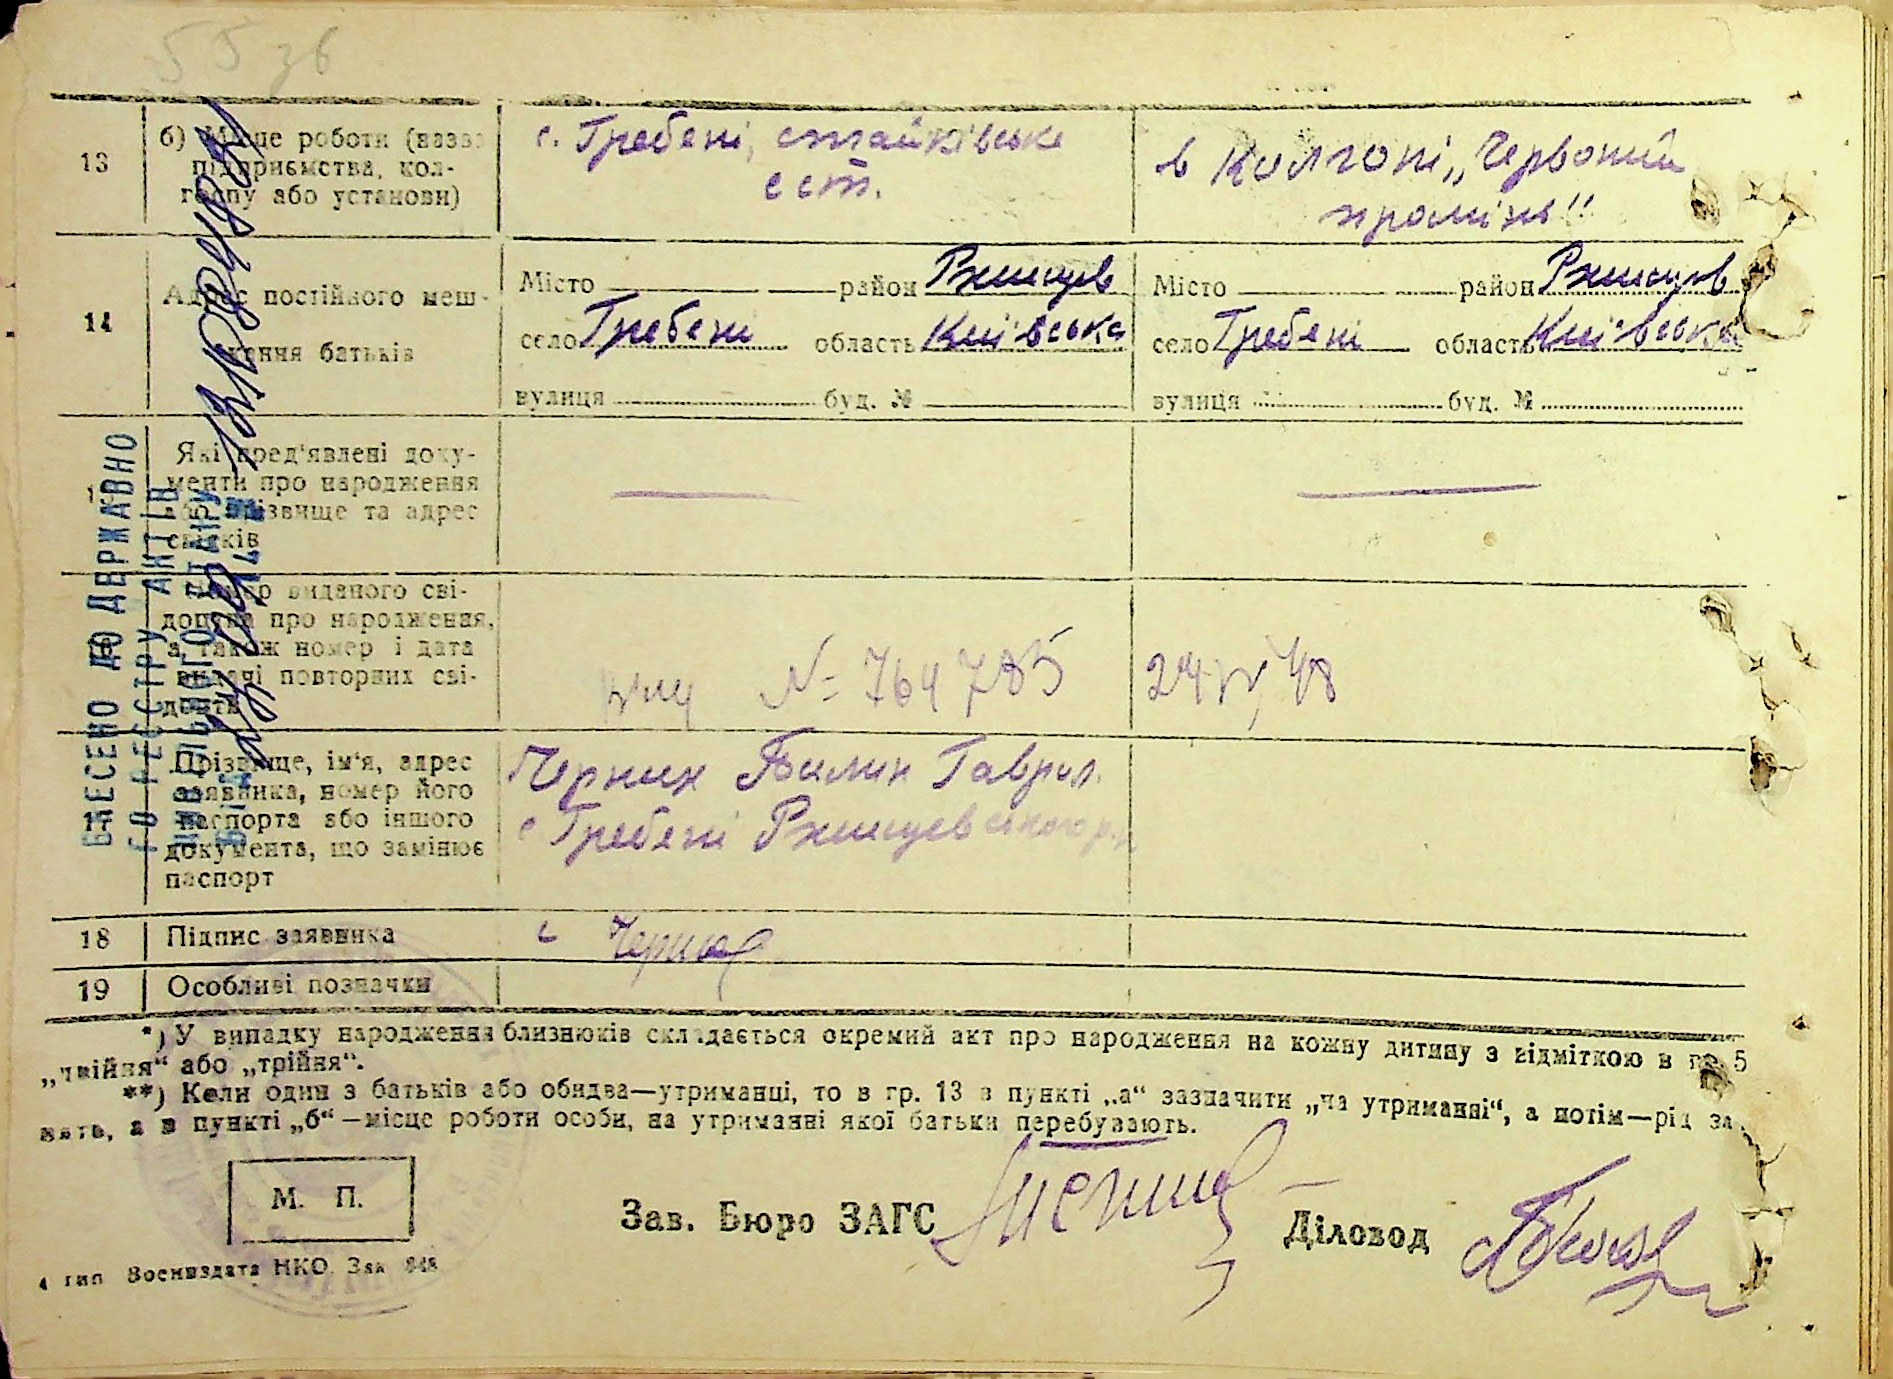 55 зв
13
б) Місце роботи (назва
підприємства, кол-
госпу або установи)
с. Гребені, стайківське
ест.
в колгопі „Червоний
промінь"
14
Адрес постійного меш-
кання батьків
Місто район Ржищев
село Гребені область Київська
вулиця буд. №
Місто район Ржищев
село Гребені область Київська
вулиця буд. №
Які пред'явлені доку-
менти про народження
або прізвище та адрес
свідків
Номер виданого сві-
доцтва про народження,
а також номер і дата
видачі повторних сві-
доцтв
№ 764785
24 IV 48
17
Прізвище, ім'я, адрес
заявника, номер його
паспорта або іншого
документа, що замінює
паспорт
Черних Гаврил.
с Гребені Ржищевського р.
18
Підпис заявника
19
Особливі позначки
ВНЕСЕНО ДО ДЕРЖАВНО
ГО РЕЄСТРУ АКТІВ
ЦИВІЛЬНОГО СТАНУ
*) У випадку народження близнюків складається окремий акт про народження на кожну дитину з відміткою в гр. 5
„двійня“ або „трійня“.
**) Коли один з батьків або обидва—утриманці, то в гр. 13 в пункті „а“ зазначити „на утриманні“, а потім—рід за
нять, а в пункті „б“—місце роботи особи, на утриманні якої батьки перебувають.
М. П.
Зав. Бюро ЗАГС
Діловод
4 тип Воениздата НКО. Зак 848